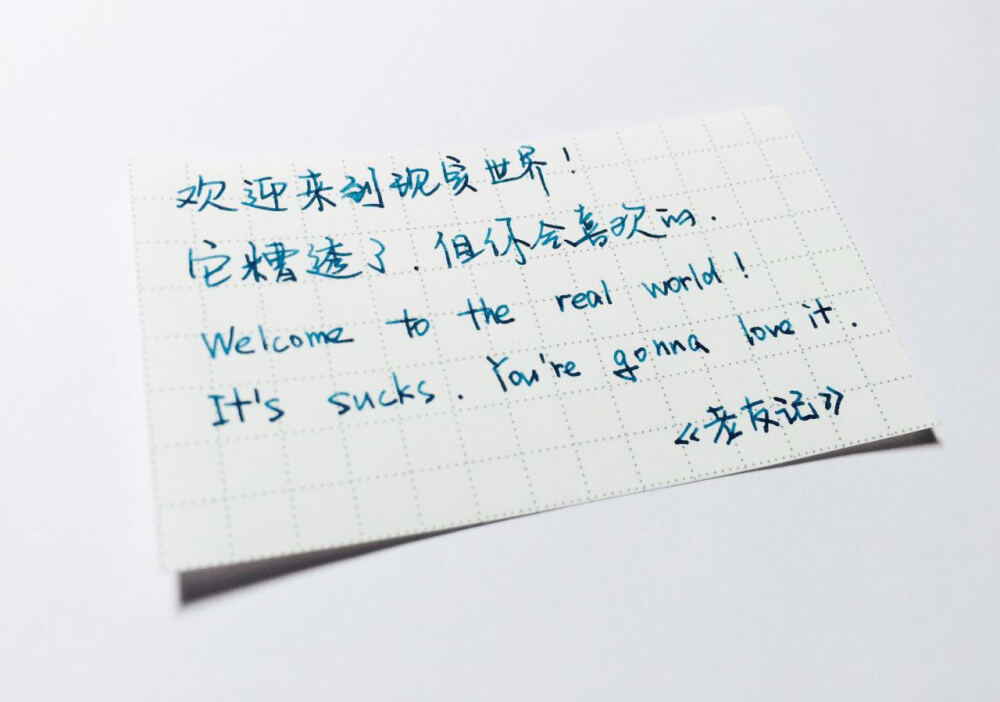 欢迎来到现实世界!
它糟透了.但你会喜欢的.
Welcome to the real world!
It's sucks. You're gonna love it.
《老友记》